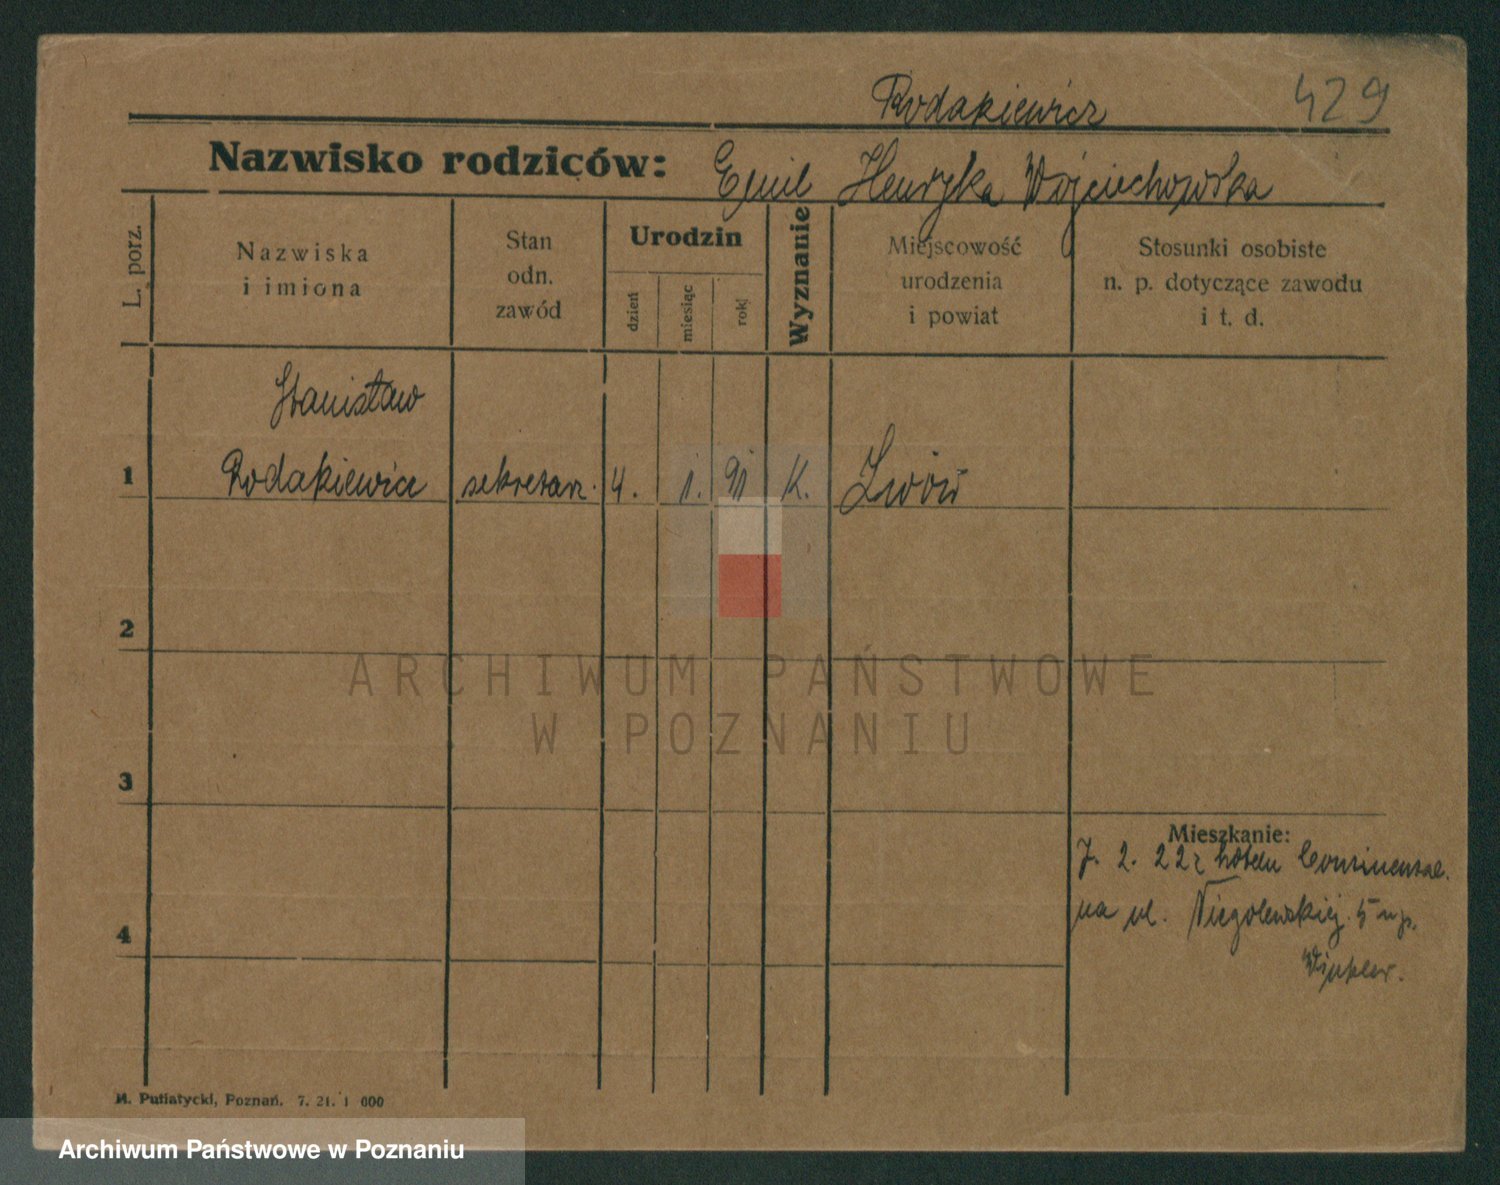 Rodakiewicz 429
Nazwisko rodziców: Emil Henryka Wojciechowska
L. porz.
Nazwiska
i imiona
Stan
odn.
zawód
Urodzin
dzień
miesiąc
rok
Wyznanie
Miejscowość
urodzenia
i powiat
Stosunki osobiste
n. p. dotyczące zawodu
i t. d.
Stanisław
1 Rodakiewicz sekretarz. 4. 1. 91 K. Lwów
2
ARCHIWUM PAŃSTWOWE
W POZNANIU
3
Mieszkanie:
2. 22 z hotelu Continental.
4 na ul. Niegolewskiej. 5
M. Putiatycki, Poznań. 7. 21. 1 000
Archiwum Państwowe w Poznaniu